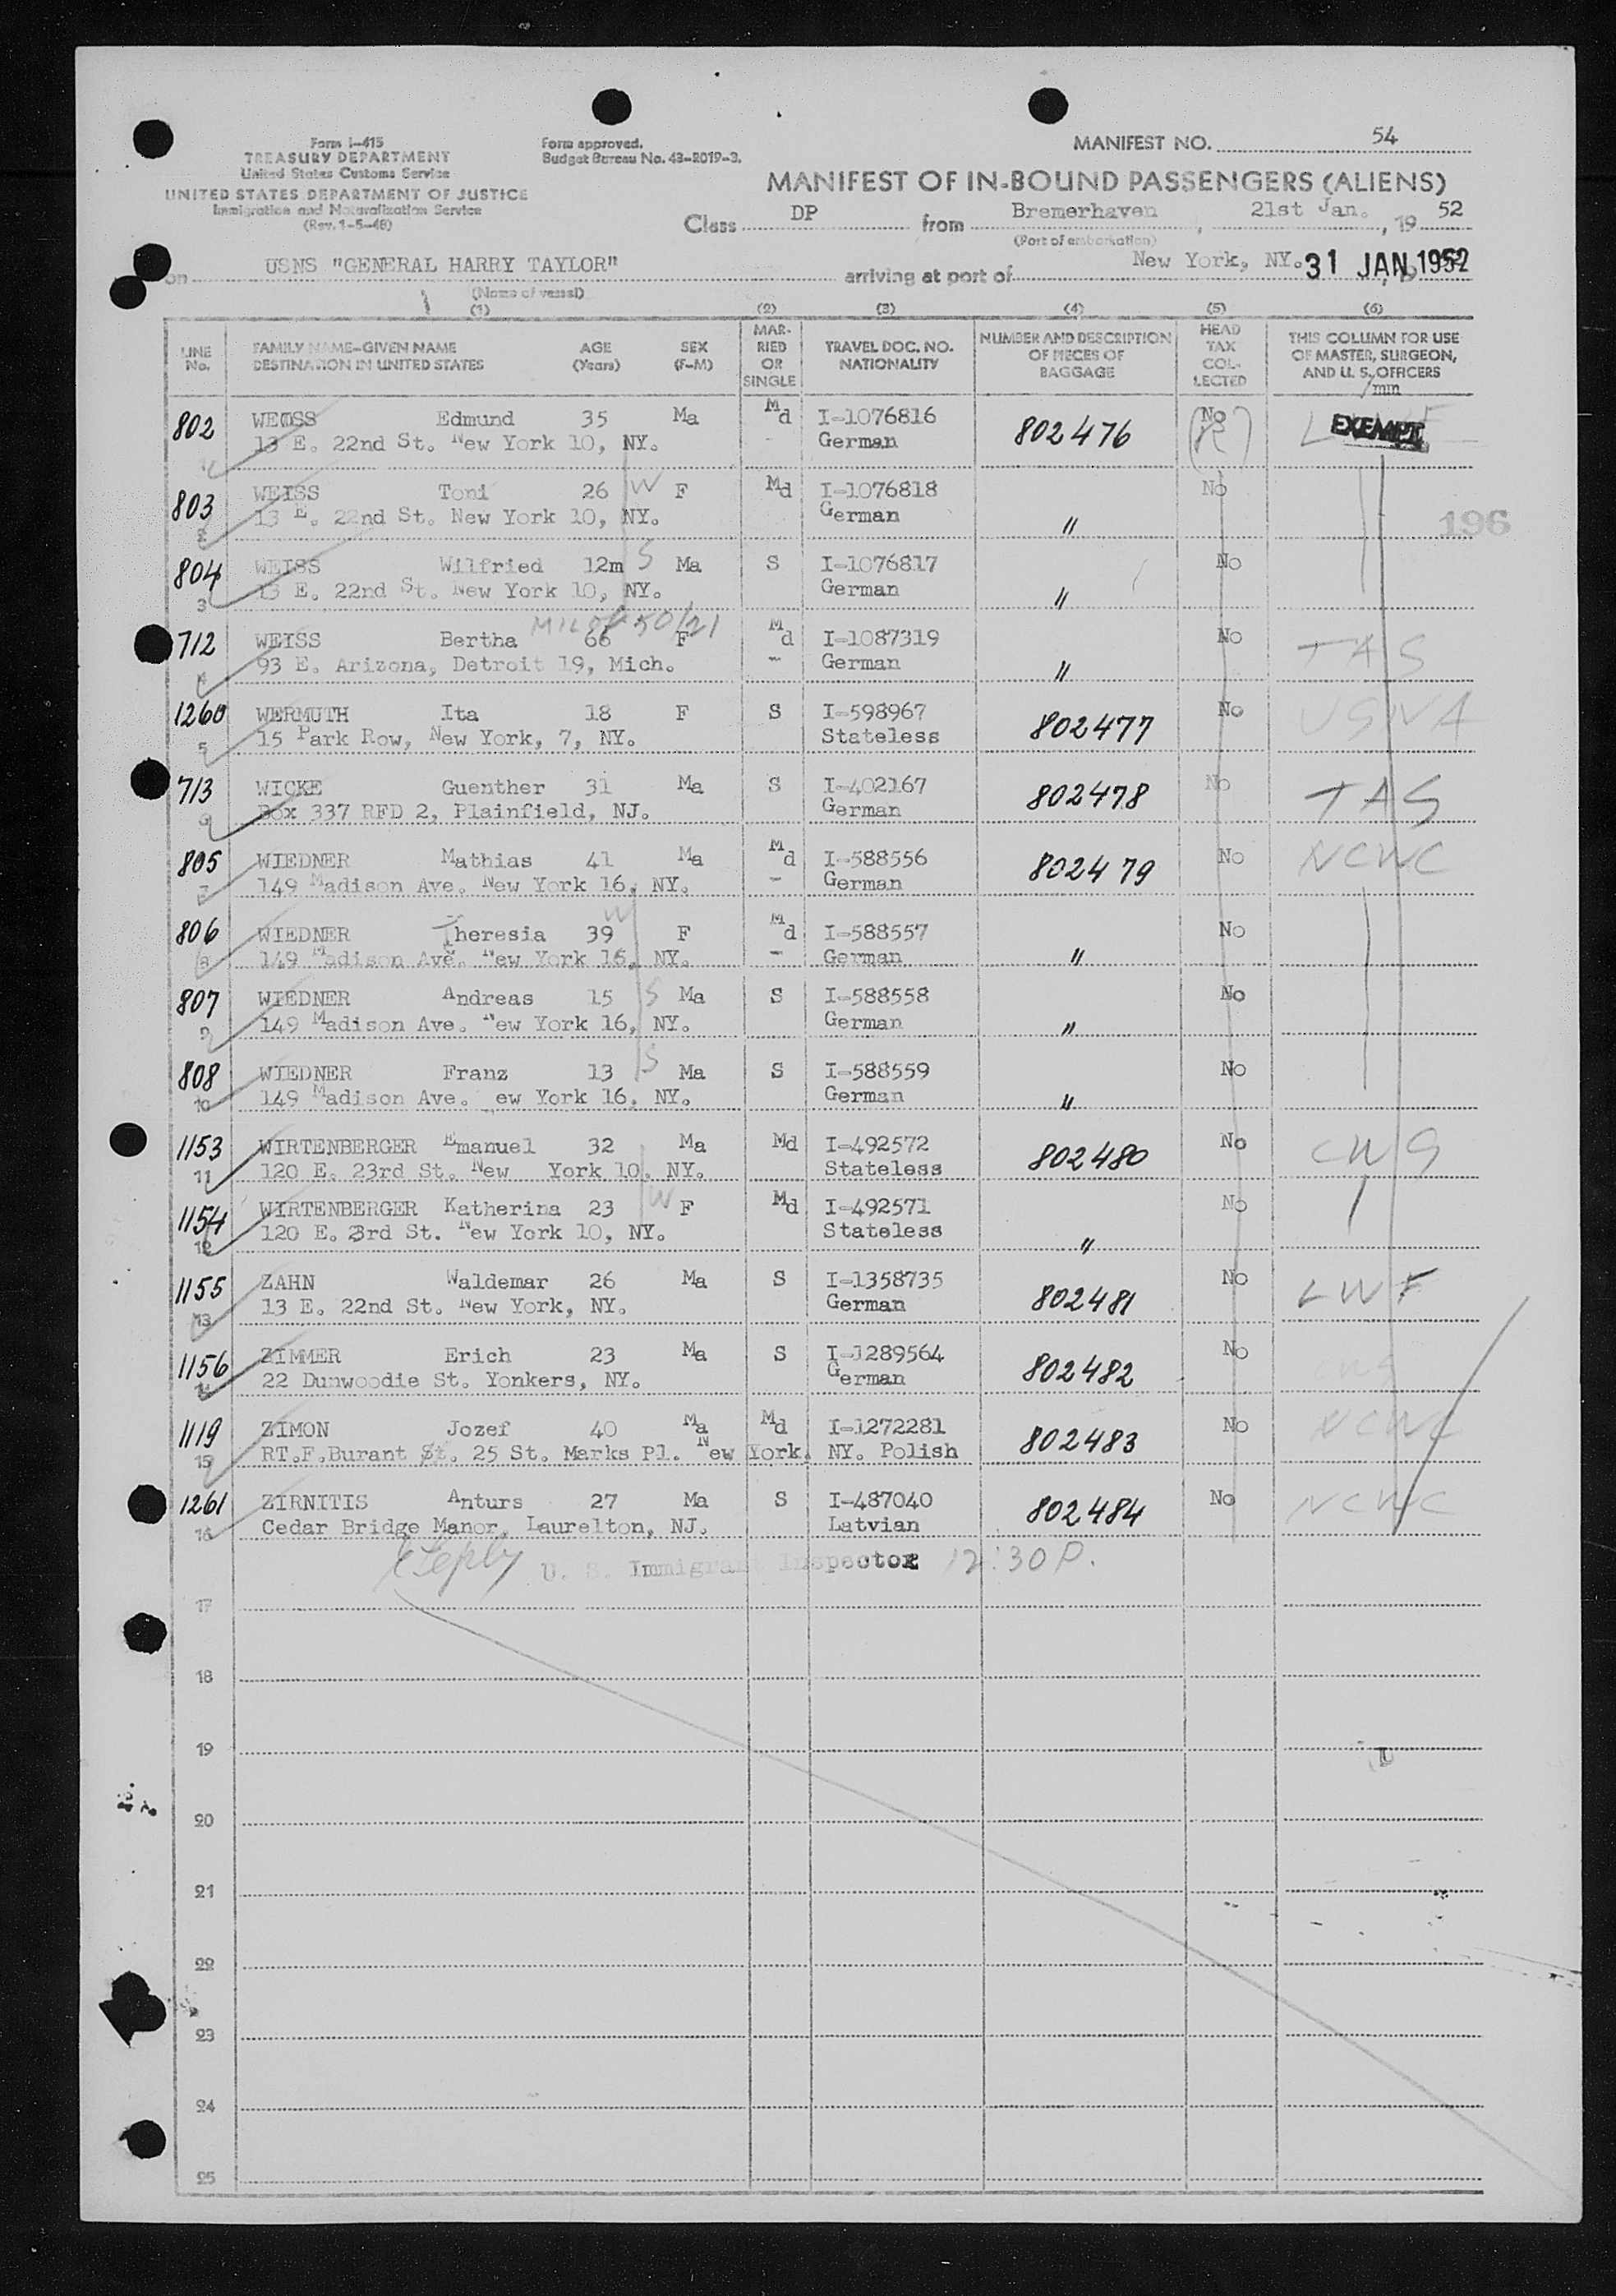 Form I-415
TREASURY DEPARTMENT
United States Customs Service
UNITED STATES DEPARTMENT OF JUSTICE
Immigration and Naturalization Service
(Rev. 1-5-48)
Form approved.
Budget Bureau No. 43-R019-3.
MANIFEST NO. 54
MANIFEST OF IN-BOUND PASSENGERS (ALIENS)
Class DP from Bremerhaven, 21st Jan., 19 52
(Port of embarkation)
on USNS "GENERAL HARRY TAYLOR" arriving at port of New York, NY. 31 JAN 1952
(Name of vessel)
(1) (2) (3) (4) (5) (6)
LINE No. FAMILY NAME-GIVEN NAME DESTINATION IN UNITED STATES AGE (Years) SEX (F-M) MARRIED OR SINGLE TRAVEL DOC. NO. NATIONALITY NUMBER AND DESCRIPTION OF PIECES OF BAGGAGE HEAD TAX COLLECTED THIS COLUMN FOR USE OF MASTER, SURGEON, AND U. S. OFFICERS
802 WEISS Edmund 35 Ma Md I-1076816 802476 No (R) EXEMPT
1 13 E. 22nd St. New York 10, NY. German
803 WEISS Toni 26 W F Md I-1076818 " No
2 13 E. 22nd St. New York 10, NY. German
196
804 WEISS Wilfried 12m S Ma S I-1076817 " No
3 13 E. 22nd St. New York 10, NY. German
712 WEISS Bertha 66 F Md I-1087319 " No TAS
4 93 E. Arizona, Detroit 19, Mich. German
1260 WERMUTH Ita 18 F S I-598967 802477 No USNA
5 15 Park Row, New York, 7, NY. Stateless
713 WICKE Guenther 31 Ma S I-402167 802478 No TAS
6 Box 337 RFD 2, Plainfield, NJ. German
805 WIEDNER Mathias 41 Ma Md I-588556 802479 No NCWC
7 149 Madison Ave. New York 16, NY. German
806 WIEDNER Theresia 39 W F Md I-588557 " No
8 149 Madison Ave. New York 16, NY. German
807 WIEDNER Andreas 15 S Ma S I-588558 " No
9 149 Madison Ave. New York 16, NY. German
808 WIEDNER Franz 13 S Ma S I-588559 " No
10 149 Madison Ave. ew York 16, NY. German
1153 WIRTENBERGER Emanuel 32 Ma Md I-492572 802480 No CWS
11 120 E. 23rd St. New York 10, NY. Stateless
1154 WIRTENBERGER Katherina 23 W F Md I-492571 " No
12 120 E. 3rd St. New York 10, NY. Stateless
1155 ZAHN Waldemar 26 Ma S I-1358735 802481 No LWF
13 13 E. 22nd St. New York, NY. German
1156 ZIMMER Erich 23 Ma S I-1289564 802482 No CWS
14 22 Dunwoodie St. Yonkers, NY. German
1119 ZIMON Jozef 40 Ma Md I-1272281 802483 No NCWC
15 RT.F.Burant St. 25 St. Marks Pl. New York, NY. Polish
1261 ZIRNITIS Anturs 27 Ma S I-487040 802484 No NCWC
16 Cedar Bridge Manor, Laurelton, NJ. Latvian
U. S. Immigrant Inspector 12:30 P.
17
18
19
20
21
22
23
24
25